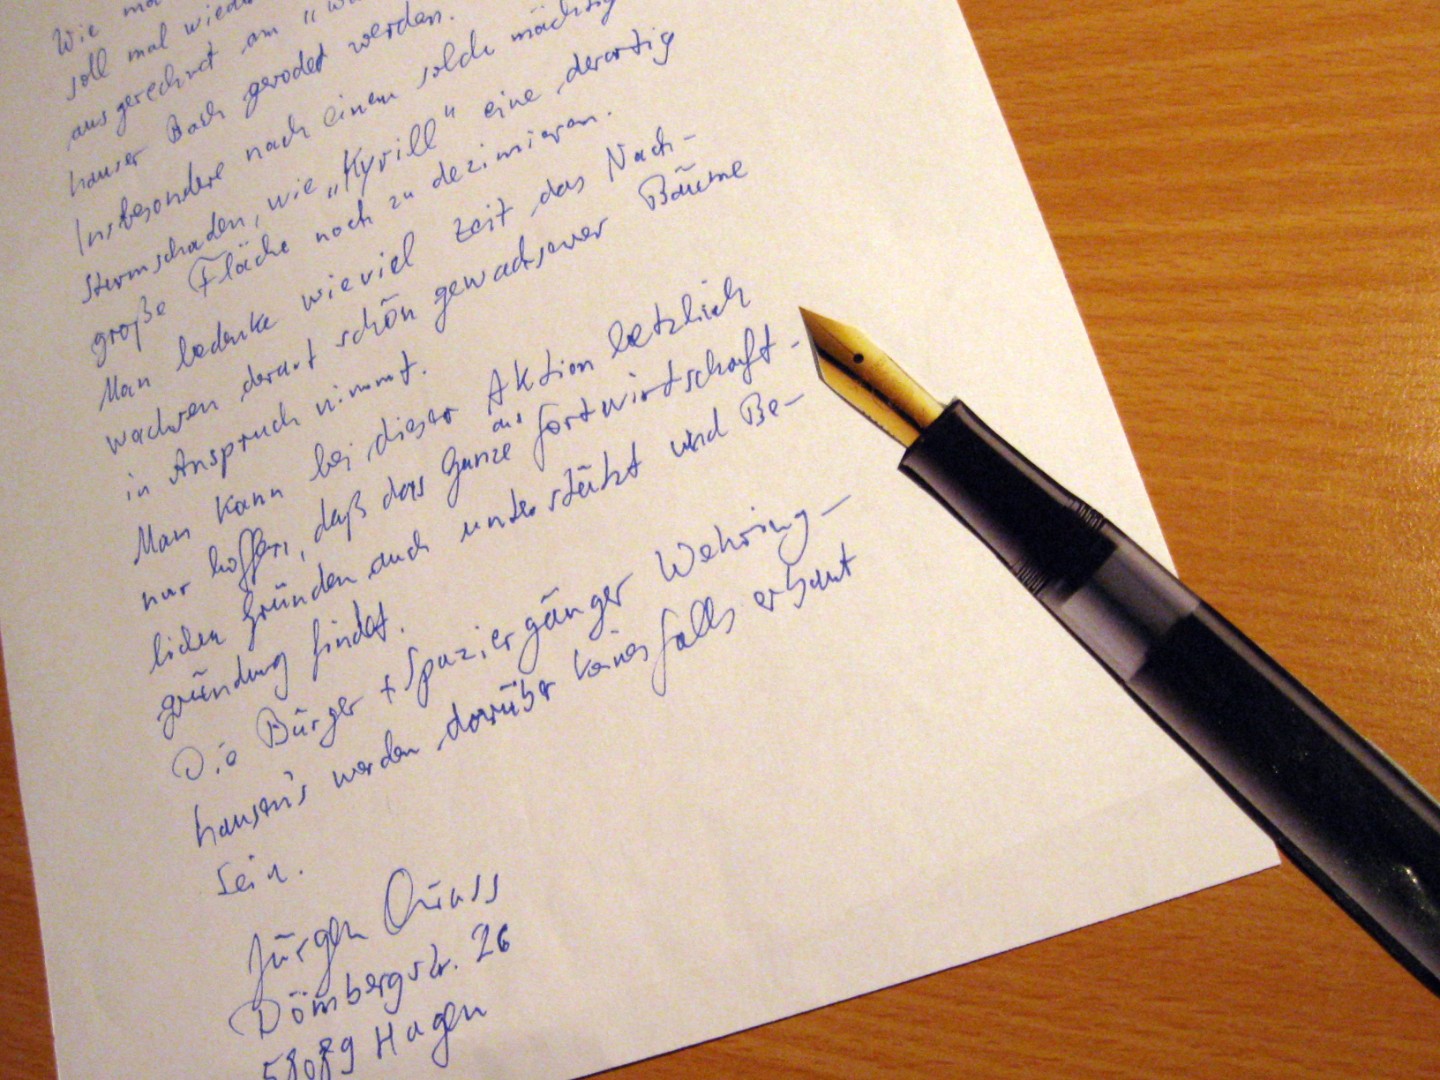 Wie
soll mal wieder
ausgerechnet am
hauser Bach gerodet werden.
Insbesondere nach einem solch mächtig
Sturmschaden, wie „Kyrill“ eine derartig
große Fläche noch zu dezimieren.
Man bedenke wieviel Zeit das Nach-
wachsen derart schön gewachsener Bäume
in Anspruch nimmt.
Man kann bei dieser Aktion letzlich
nur hoffen, daß das Ganze aus fortwirtschaft-
lichen Gründen auch unterstützt und Be-
gründung findet.
Die Bürger + Spaziergänger Wehring-
hausen's werden darüber keinesfalls erbaut
sein.
Jürgen
Dömbergstr. 26
58089 Hagen